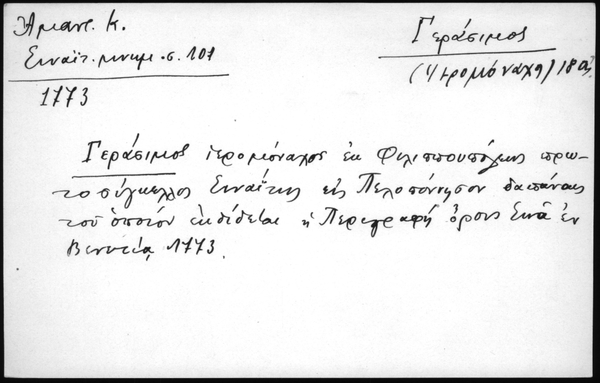 Ἄμαντ. Κ.
Σιναϊτ. μνημ. σ. 101
1773
Γεράσιμος
(Ἱερομόναχος) 18 αἰ.
Γεράσιμος ἱερομόναχος ἐκ Φιλιππουπόλεως πρω-
τοσύγκελλος Σιναΐτης εἰς Πελοπόννησον δαπάναις
τοῦ ὁποίου ἐκδίδεται ἡ Περιγραφή ὄρους Σινᾶ ἐν
Βενετίᾳ 1773.